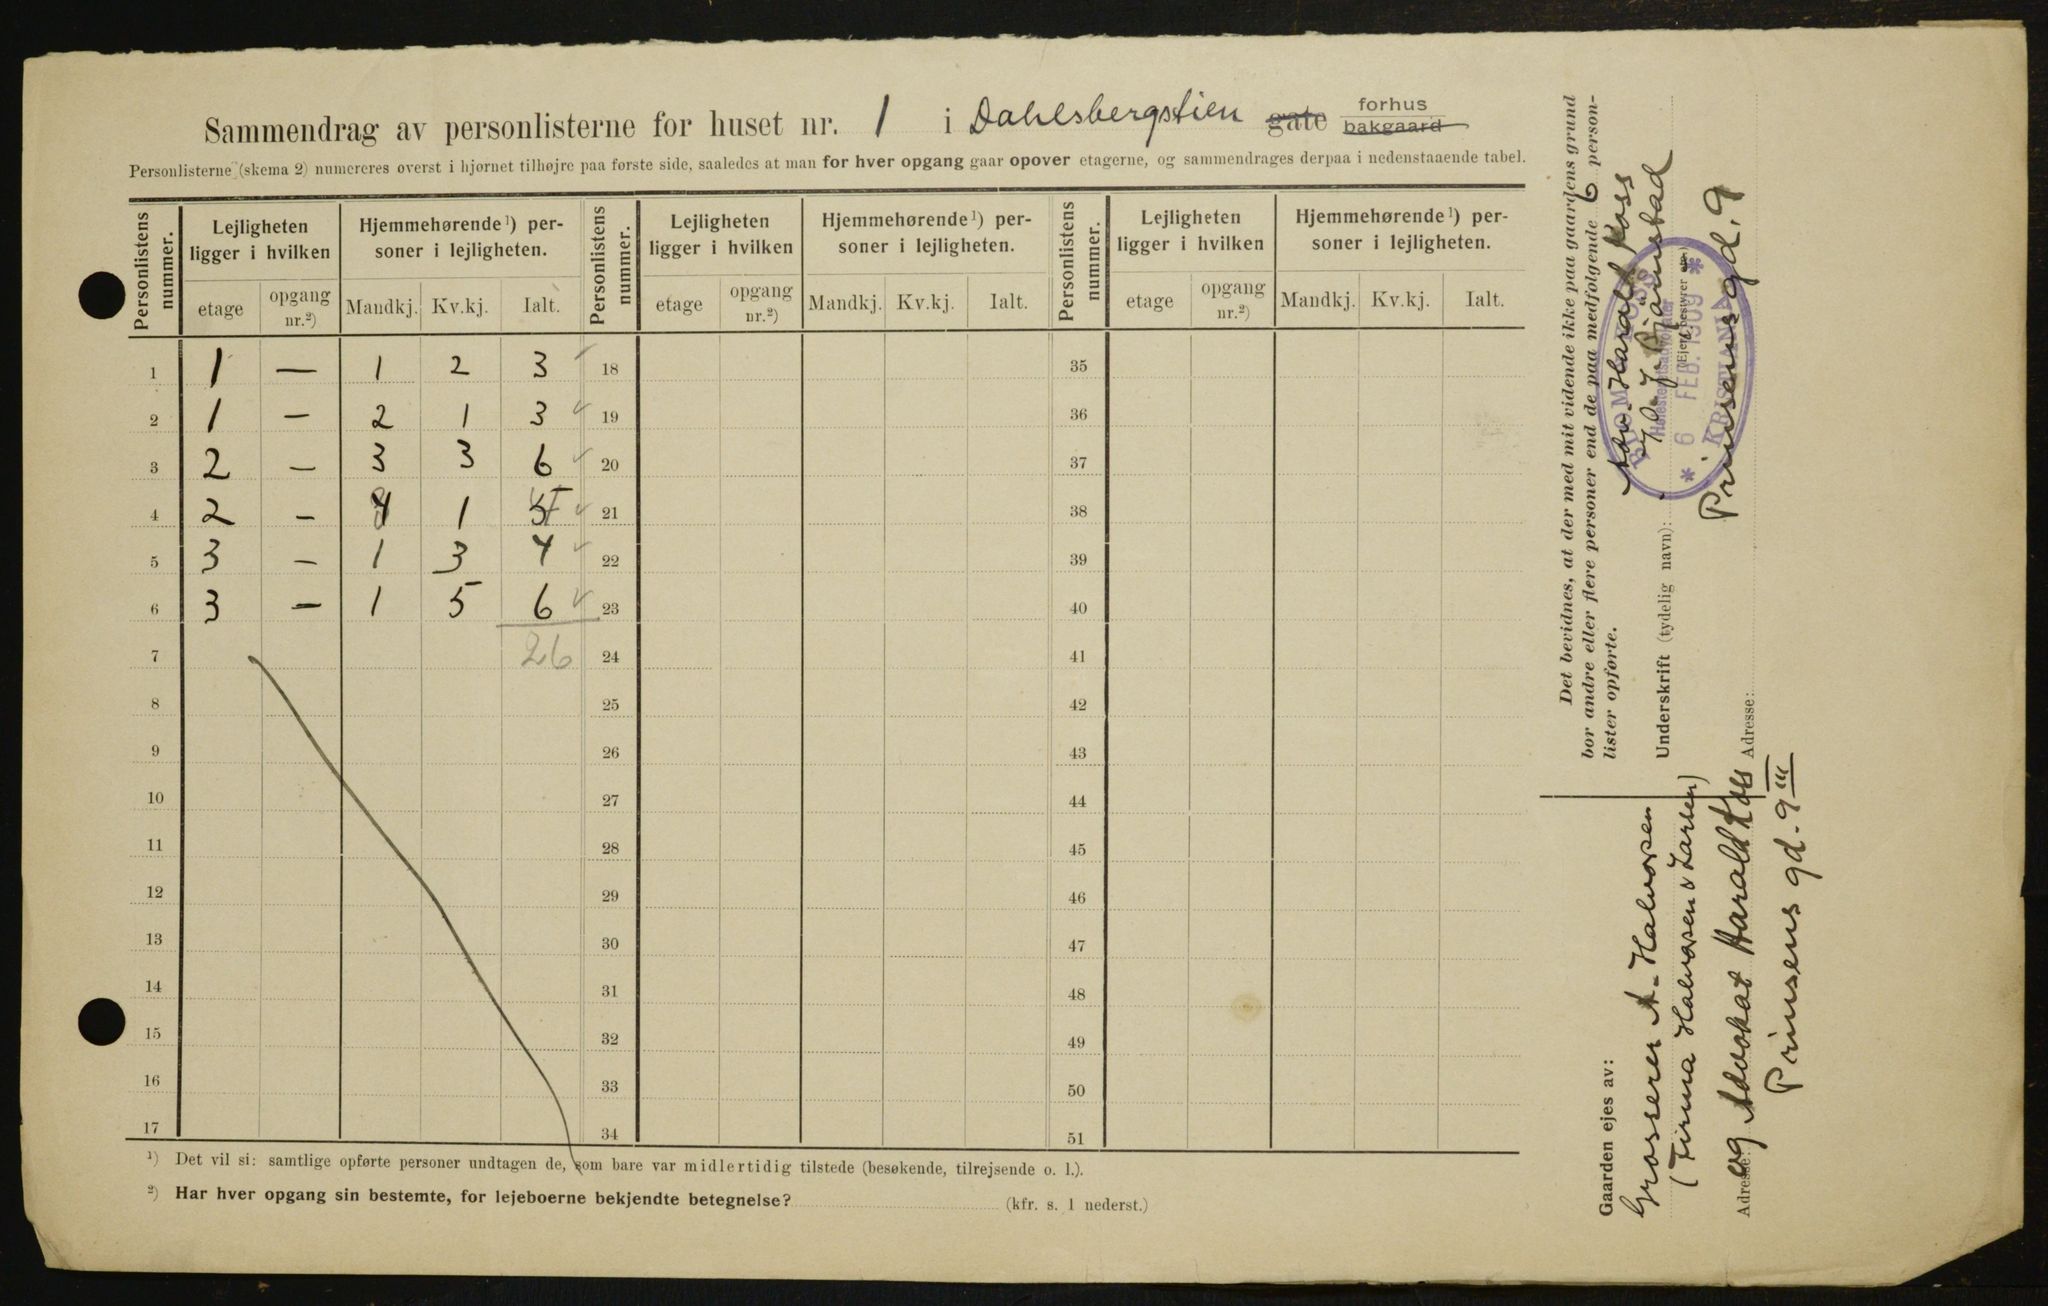 Sammendrag av personlisterne for huset nr. 1 i Dahlsbergstien gate forhus bakgaard
Personlisterne (skema 2) numereres øverst i hjørnet tilhøjre paa første side, saaledes at man for hver opgang gaar opover etagerne, og sammendrages derpaa i nedenstaaende tabel.
Personlistens nummer. Lejligheten ligger i hvilken Hjemmehørende ¹) personer i lejligheten. Personlistens nummer. Lejligheten ligger i hvilken Hjemmehørende ¹) personer i lejligheten. Personlistens nummer. Lejligheten ligger i hvilken Hjemmehørende ¹) personer i lejligheten.
etage opgang nr.²) Mandkj. Kv.kj. Ialt. etage opgang nr.²) Mandkj. Kv.kj. Ialt. etage opgang nr.²) Mandkj. Kv.kj. Ialt.
1 1 — 1 2 3 18 35
2 1 — 2 1 3 19 36
3 2 — 3 3 6 20 37
4 2 — 1 21 38
5 3 — 1 3 4 22 39
6 3 — 1 5 6 23 40
7 26 24 41
8 25 42
9 26 43
10 27 44
11 28 45
12 29 46
13 30 47
14 31 48
15 32 49
16 33 50
17 34 51
¹) Det vil si: samtlige opførte personer undtagen de, som bare var midlertidig tilstede (besøkende, tilrejsende o. l.).
²) Har hver opgang sin bestemte, for lejeboerne bekjendte betegnelse? (kfr. s. 1 nederst.)
Det bevidnes, at der med mit vidende ikke paa gaardens grund
bor andre eller flere personer end de paa medfølgende 6 person-
lister opførte.
Adv. Harald Koss
Underskrift (tydelig navn):
(Ejer, bestyrer
Prinsens gd. 9
Adresse:
6 FEB. 1909
Høiesteretsadvokater
KRISTIANIA
Gaarden ejes av:
Grosserer A. Halvorsen
(Firma Halvorsen & Larsen)
og Advokat Harald Koss
Adresse:
Prinsens gd. 9 III